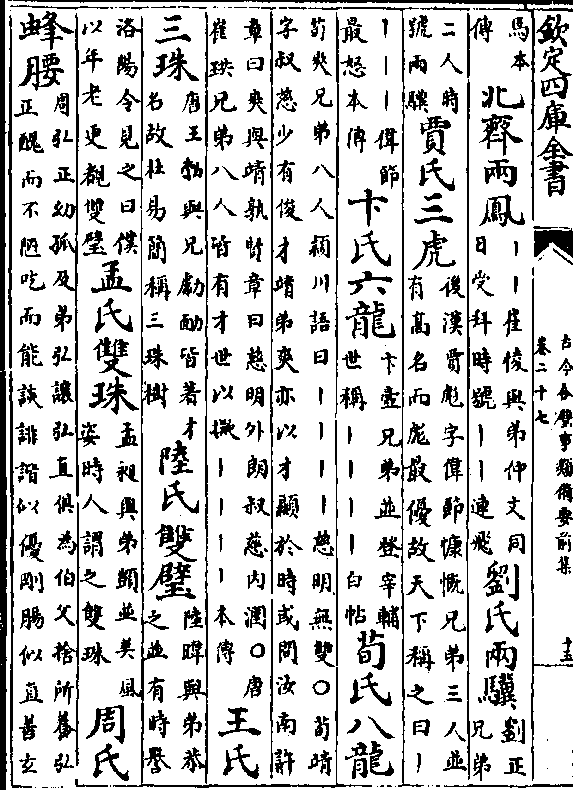 欽定四庫全書
古今合璧事類備要前集
卷二十七
十五
馬本
傳
北齊兩鳳
丨丨崔俊與弟仲文同
日受拜時號丨丨連飛
劉氏兩驥
劉正
兄弟
二人時
號兩驥
賈氏三虎
後漢賈彪字偉節慷慨兄弟三人並
有高名而彪最優故天下稱之曰丨
丨丨丨偉節
最怒本傳
卞氏六龍
卞壼兄弟並登宰輔
世稱丨丨丨丨白帖
荀氏八龍
荀爽兄弟八人潁川語曰丨丨丨丨慈明無雙○荀靖
字叔慈少有俊才靖弟爽亦以才顯於時或問汝南許
章曰爽與靖孰賢章曰慈明外朗叔慈内潤○唐
崔珙兄弟八人皆有才世以擬丨丨丨丨本傳
王氏
三珠
唐王勃與兄勮勔皆著才
名故杜易簡稱三珠樹
陸氏雙璧
陸暐與弟恭
之並有時譽
洛陽令見之曰僕
以年老更覩雙璧
孟氏雙珠
孟昶與弟顗並美風
姿時人謂之雙珠
周氏
蜂腰
周弘正幼孤及弟弘讓弘直俱為伯父捨所養弘
正醜而不陋吃而能談誹諧似優剛腸似直善玄